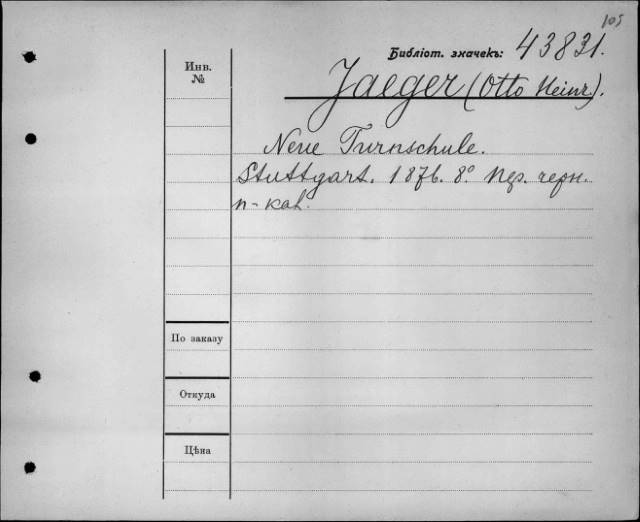 105
Библіот. значекъ: 43831.
Инв.
№
Jaeger (Otto Heinr.).
Neue Turnschule.
Stuttgart. 1876. 8° Пер. черн.
п-кал.
По заказу
Откуда
Цѣна